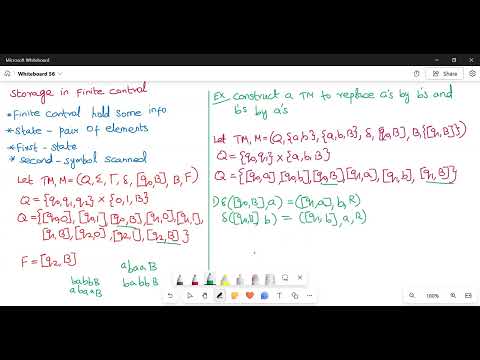 Microsoft Whiteboard
Whiteboard 56
Share
Storage in Finite control
*Finite control hold some info
*State - pair of elements
*First - state
*second-symbol scanned
Let TM, M = (Q, Σ, Γ, δ, [q0,B], B, F)
Q = {q0, q1, q2} × {0, 1, B}
F = [q2, B]
abaaB
babbB
babbB
abaaB
Ex construct a TM to replace a's by b's and
b's by a's
Let TM, M = (Q, {a,b}, {a,b,B}, δ, [q0,B], B, {[q1,B]})
Q = {q0, q1} × {a, b, B}
Q = {[q0,a], [q0,b], [q0,B], [q1,a], [q1,b], [q1,B]}
1) δ([q0,B], a) = ([q1,a], b, R)
δ([q0,B], b) = ([q1,b], a, R)
100%